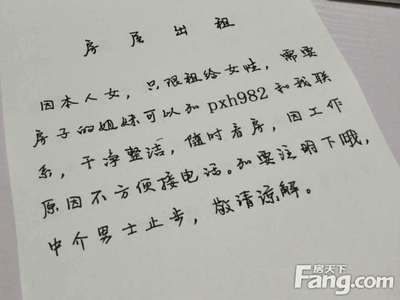 房屋出租
因本人女，只限租给女性，需要
房子的姐妹可以加pxh982和我联
系，干净整洁，值时看房，因工作
原因不方便接电话。加要注明下哦，
中介男士止步，敬请谅解。
房天下
Fang.com